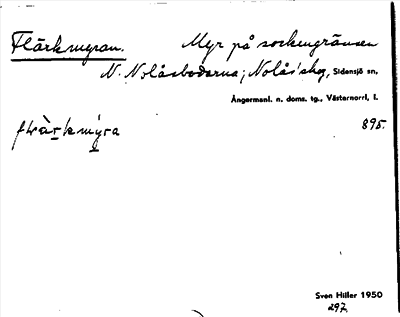 Flärkmyran. Myr på sockengränsen
N. Nolåsbodarna; Nolås' skog, Sidensjö sn,
Ångermanl. n. doms. tg., Västernorrl. l.
flärkmýra 895.
Sven Hiller 1950
297.